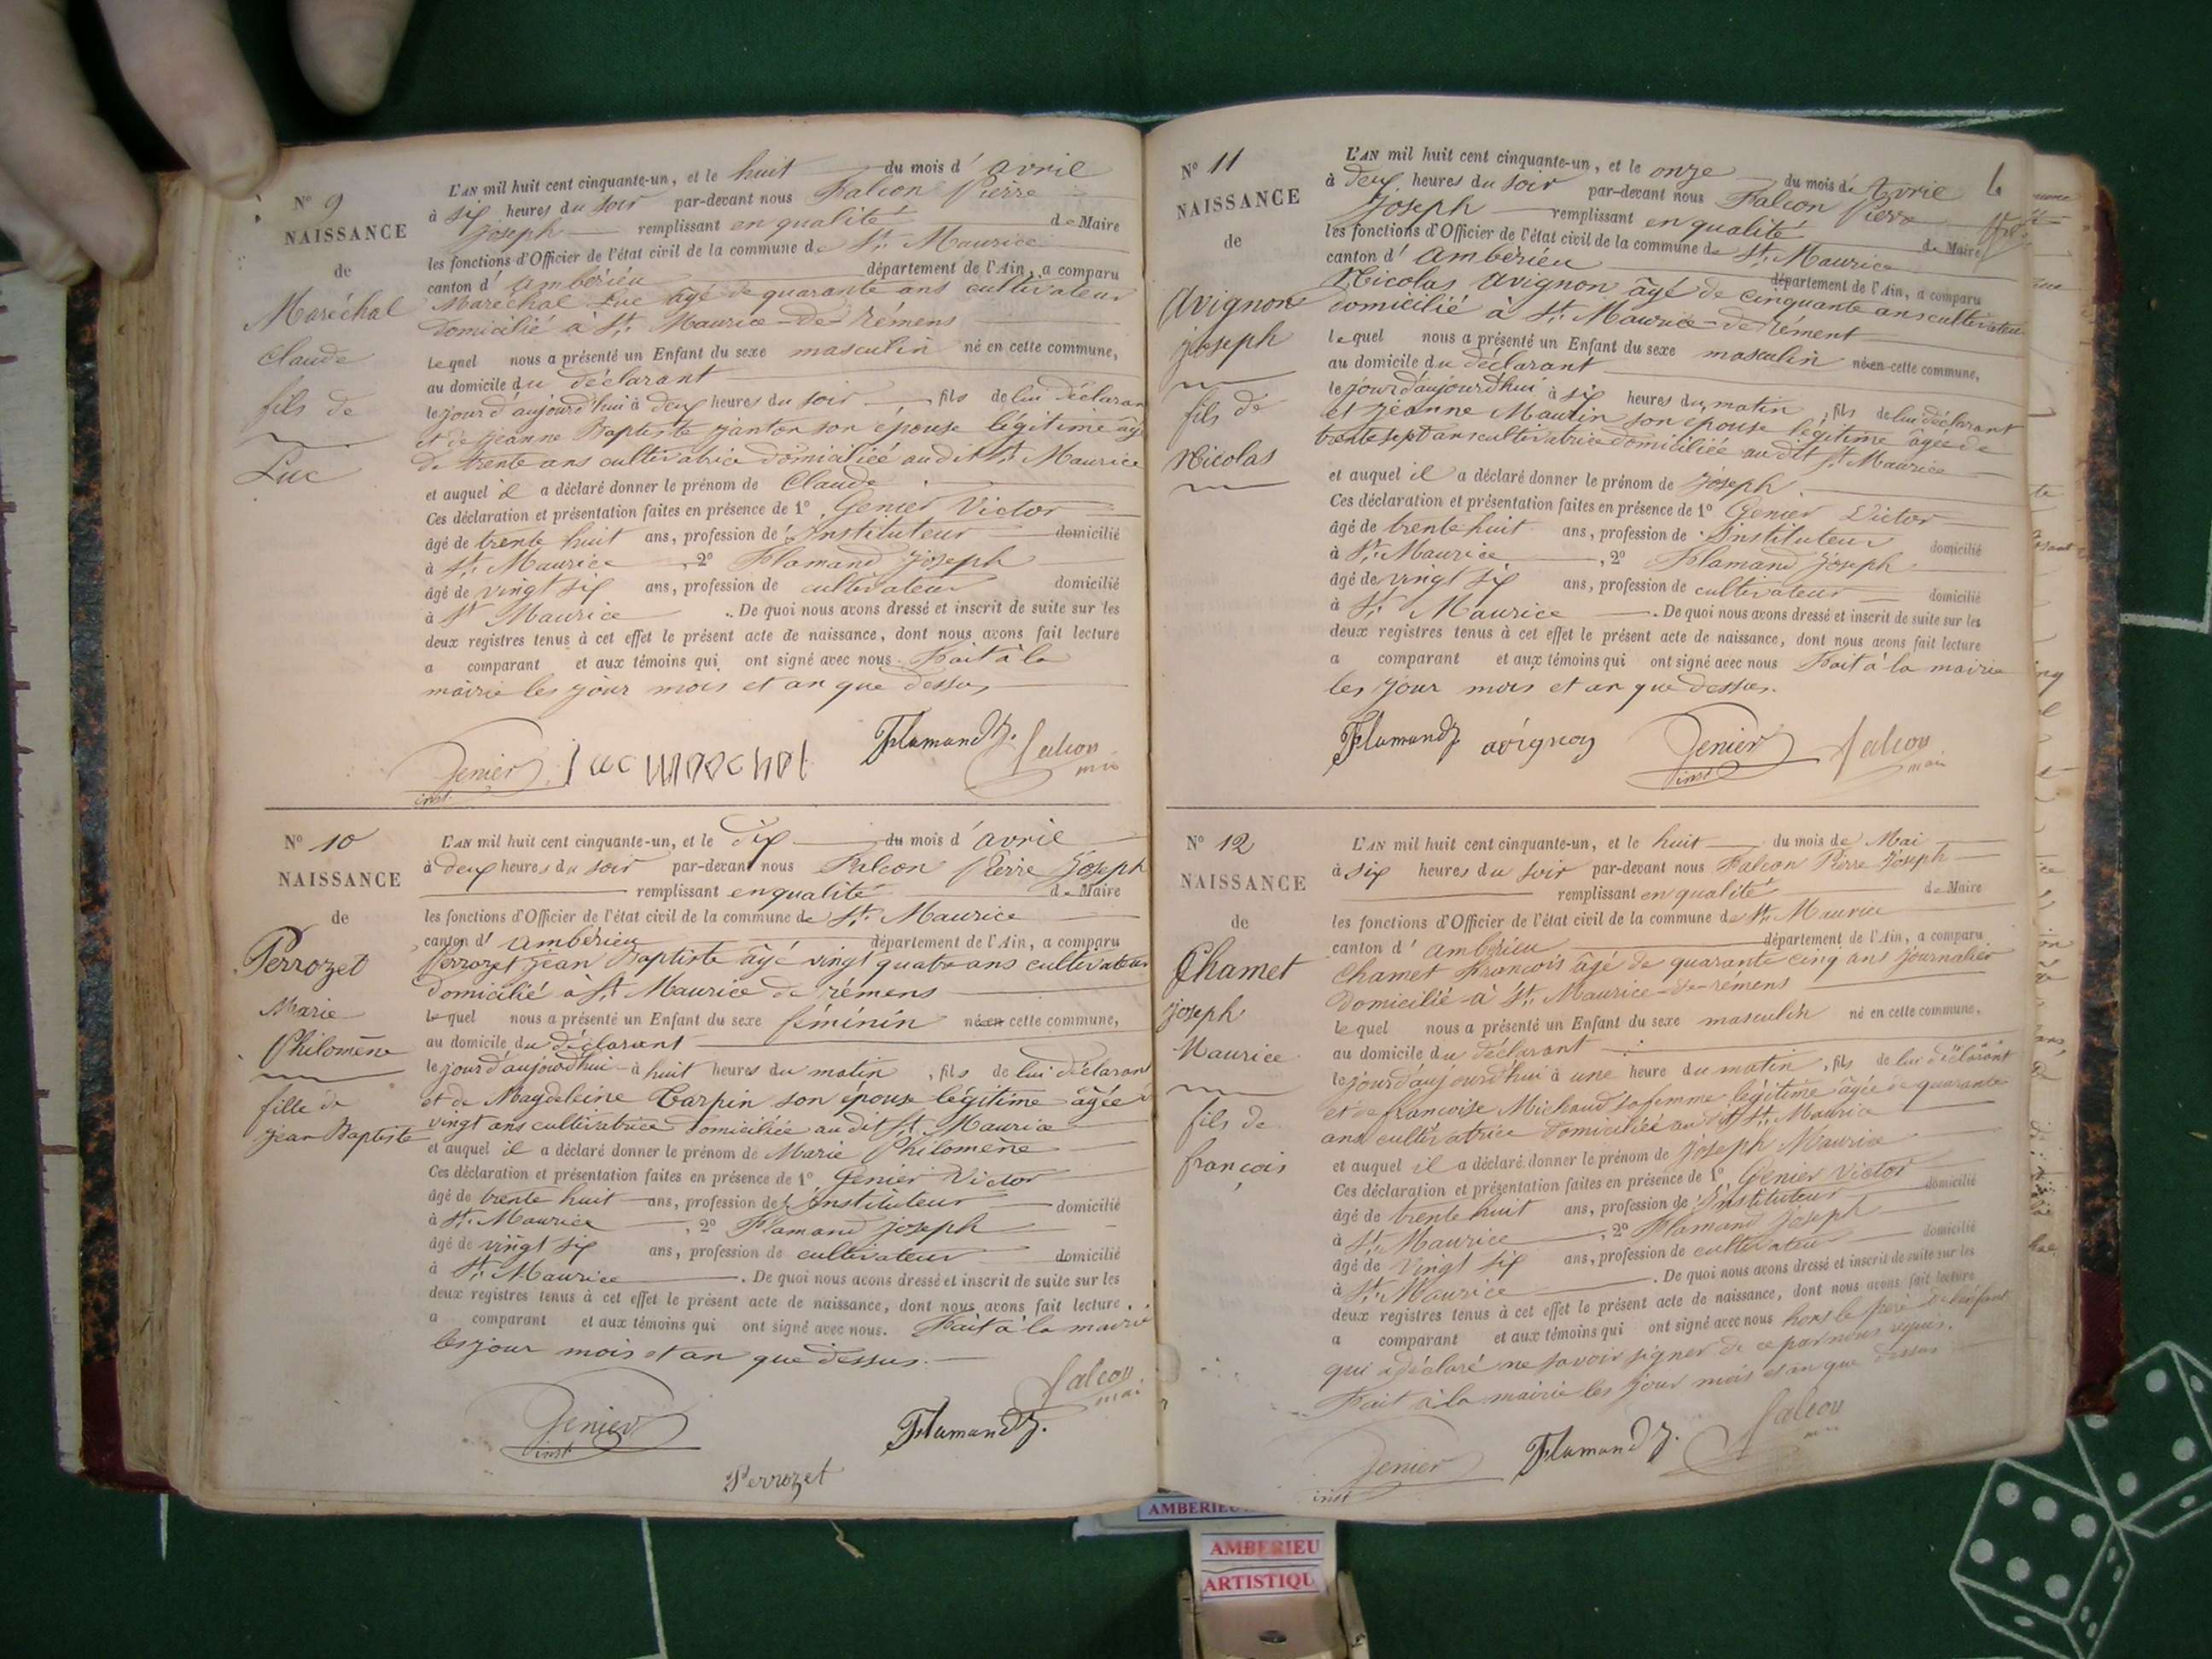 N° 9
NAISSANCE
de
Maréchal
Claude
fils de
Luc
L'AN mil huit cent cinquante-un, et le huit du mois d' avril
à six heures du soir par-devant nous Falcon Pierre
joseph remplissant en qualité de Maire
les fonctions d'Officier de l'état civil de la commune de St. Maurice
canton d' ambérieu département de l'Ain, a comparu
Maréchal Luc âgé de quarante ans cultivateur
domicilié à St. Maurice-de-rémens
lequel nous a présenté un Enfant du sexe masculin né en cette commune,
au domicile du déclarant
le jour d'aujourd'hui à deux heures du soir fils de lui déclarant
et de jeanne Baptiste janton son épouse légitime âgé
de trente ans cultivatrice domiciliée audit St. Maurice
et auquel il a déclaré donner le prénom de Claude
Ces déclaration et présentation faites en présence de 1° Genier Victor
âgé de trente huit ans, profession d'Instituteur domicilié
à St. Maurice 2° Flamand joseph
âgé de vingt six ans, profession de cultivateur domicilié
à St Maurice . De quoi nous avons dressé et inscrit de suite sur les
deux registres tenus à cet effet le présent acte de naissance, dont nous avons fait lecture
a comparant et aux témoins qui ont signé avec nous. Fait à la
mairie les jour mois et an que dessus
Genier inst. Flamand J. falcon
N° 10
NAISSANCE
de
Perrozet
Marie
Philomène
fille de
jean Baptiste
L'AN mil huit cent cinquante-un, et le dix du mois d' avril
à deux heures du soir par-devant nous Falcon Pierre joseph
remplissant en qualité de Maire
les fonctions d'Officier de l'état civil de la commune de St. Maurice
canton d' ambérieu département de l'Ain, a comparu
Perrozet jean Baptiste âgé vingt quatre ans cultivateur
domicilié à St. Maurice de rémens
lequel nous a présenté un Enfant du sexe féminin né en cette commune,
au domicile du déclarant
le jour d'aujourd'hui à huit heures du matin , fils de lui déclarant
et de Magdeleine Carpin son épouse légitime âgée
vingt ans cultivatrice domiciliée audit St. Maurice
et auquel il a déclaré donner le prénom de Marie Philomène
Ces déclaration et présentation faites en présence de 1° Genier Victor
âgé de trente huit ans, profession d'Instituteur domicilié
à St. Maurice , 2° Flamand joseph
âgé de vingt six ans, profession de cultivateur domicilié
à St. Maurice . De quoi nous avons dressé et inscrit de suite sur les
deux registres tenus à cet effet le présent acte de naissance, dont nous avons fait lecture
a comparant et aux témoins qui ont signé avec nous. Fait à la mairie
les jour mois et an que dessus.
Genier inst Flamand J. falcon
Perrozet
N° 11
NAISSANCE
de
Avignon
joseph
fils de
Nicolas
L'AN mil huit cent cinquante-un, et le onze du mois d' Avril
à deux heures du soir par-devant nous Falcon Pierre
Joseph remplissant en qualité de Maire
les fonctions d'Officier de l'état civil de la commune de St. Maurice
canton d' ambérieu département de l'Ain, a comparu
Nicolas Avignon âgé de cinquante ans cultivateur
domicilié à St. Maurice-de-rément
lequel nous a présenté un Enfant du sexe masculin né en cette commune,
au domicile du déclarant
le jour d'aujourd'hui à six heures du matin , fils de lui déclarant
et jeanne Mautin son épouse légitime âgée de
trente sept ans cultivatrice domiciliée audit St Maurice
et auquel il a déclaré donner le prénom de joseph
Ces déclaration et présentation faites en présence de 1° Genier Victor
âgé de trente huit ans, profession d'Instituteur domicilié
à St. Maurice , 2° Flamand joseph
âgé de vingt six ans, profession de cultivateur domicilié
à St. Maurice . De quoi nous avons dressé et inscrit de suite sur les
deux registres tenus à cet effet le présent acte de naissance, dont nous avons fait lecture
a comparant et aux témoins qui ont signé avec nous Fait à la mairie
les jour mois et an que dessus.
Flamand J avignon Genier inst falcon
N° 12
NAISSANCE
de
Chamet
joseph
Maurice
fils de
françois
L'AN mil huit cent cinquante-un, et le huit du mois de Mai
à six heures du soir par-devant nous Falcon Pierre joseph
remplissant en qualité de Maire
les fonctions d'Officier de l'état civil de la commune de St. Maurice
canton d' ambérieu département de l'Ain, a comparu
Chamet François âgé de quarante cinq ans journalier
domicilié à St. Maurice-de-rémens
lequel nous a présenté un Enfant du sexe masculin né en cette commune,
au domicile du déclarant
le jour d'aujourd'hui à une heure du matin , fils de lui déclarant
et de francoise Michaud sa femme légitime âgée de quarante
ans cultivatrice domiciliée audit St. Maurice
et auquel il a déclaré donner le prénom de joseph Maurice
Ces déclaration et présentation faites en présence de 1° Genier Victor
âgé de trente huit ans, profession d'Instituteur domicilié
à St. Maurice , 2° Flamand joseph
âgé de vingt six ans, profession de cultivateur domicilié
à St. Maurice . De quoi nous avons dressé et inscrit de suite sur les
deux registres tenus à cet effet le présent acte de naissance, dont nous avons fait lecture
a comparant et aux témoins qui ont signé avec nous hors le père de l'enfant
qui a déclaré ne savoir signer de ce par nous requis.
Fait à la mairie les jour mois et an que dessus
Genier inst Flamand J. falcon
AMBERIEU
AMBERIEU
ARTISTIQU